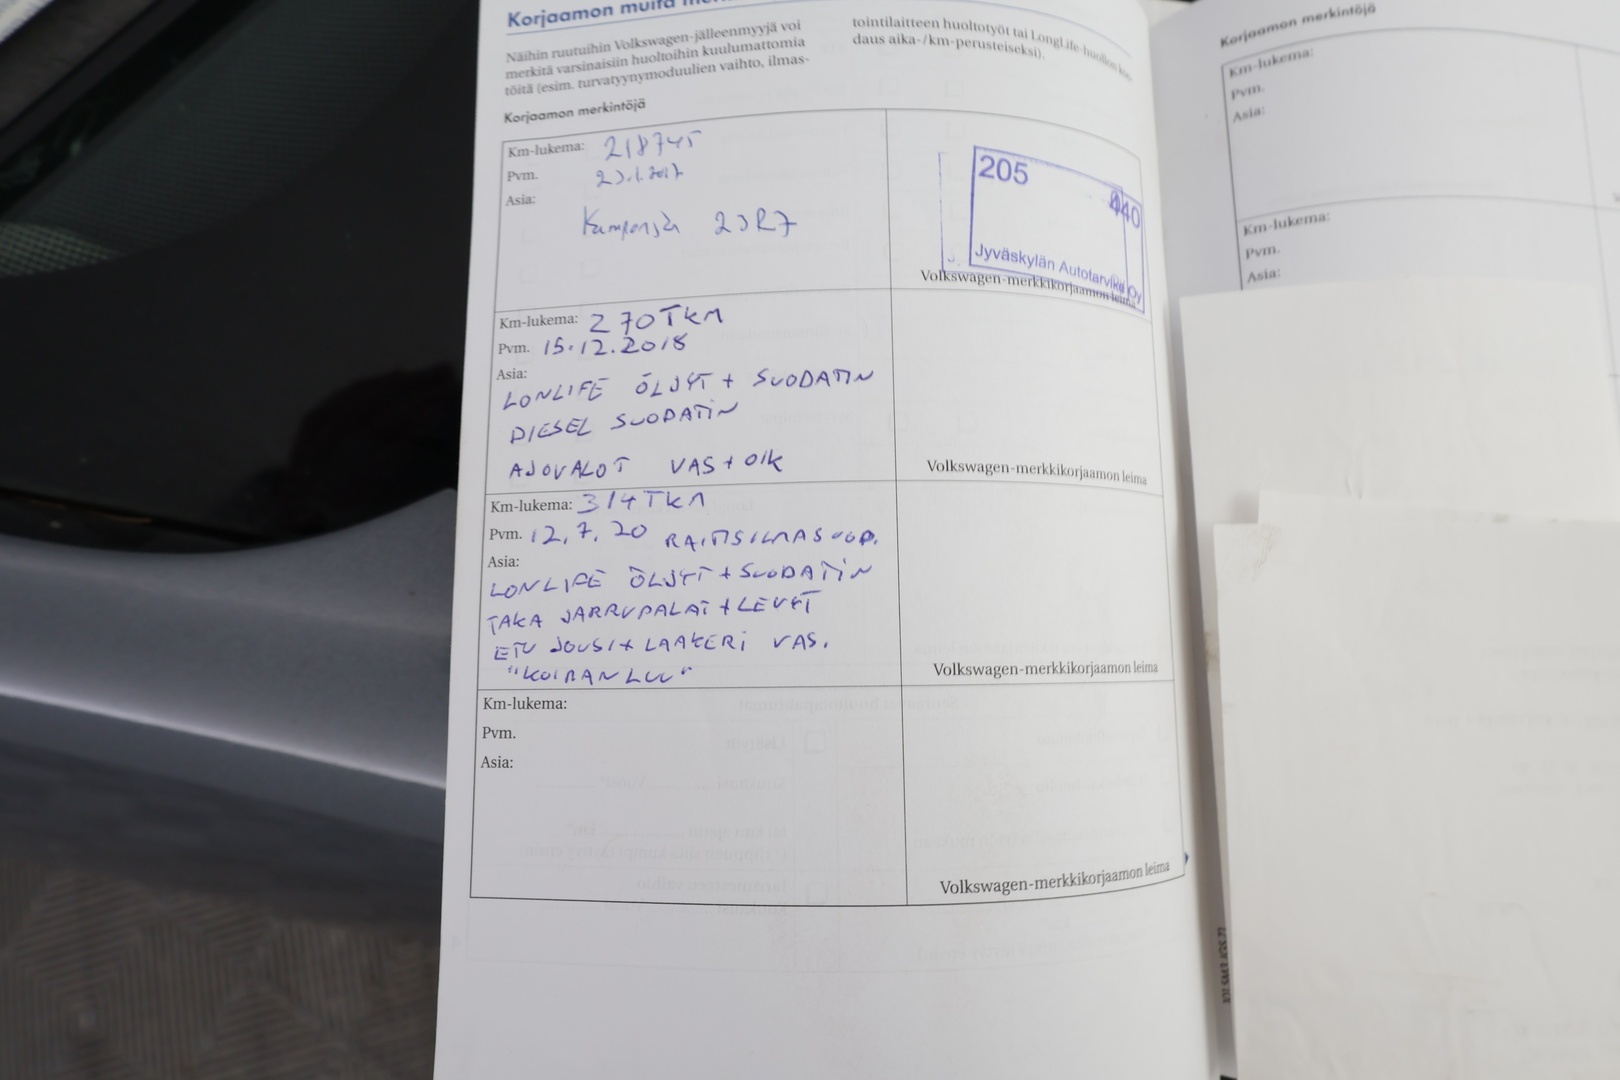 Korjaamon muita
Näihin ruutuihin Volkswagen-jälleenmyyjä voi
merkitä varsinaisiin huoltoihin kuulumattomia
töitä (esim. turvatyynymoduulien vaihto, ilmas-
tointilaitteen huoltotyöt tai LongLife-huollon
daus aika-/km-perusteiseksi).
Korjaamon merkintöjä
Km-lukema: 218745
Pvm. 23.1.2017
Asia:
Kampanja 23R7
205
440
Jyväskylän Autotarvike Oy
Volkswagen-merkkikorjaamon leima
Km-lukema: 270TKM
Pvm. 15.12.2018
Asia:
LONLIFE ÖLJYT + SUODATIN
DIESEL SUODATIN
AJOVALOT VAS + OIK
Volkswagen-merkkikorjaamon leima
Km-lukema: 314TKM
Pvm. 12.7.20 RAITISILMASUOD.
Asia:
LONLIFE ÖLJYT + SUODATIN
TAKA JARRUPALAT + LEVYT
ETU JOUSI + LAAKERI VAS.
"KOIRANLUU"
Volkswagen-merkkikorjaamon leima
Km-lukema:
Pvm.
Asia:
Volkswagen-merkkikorjaamon leima
Korjaamon merkintöjä
Km-lukema:
Pvm.
Asia:
Km-lukema:
Pvm.
Asia: